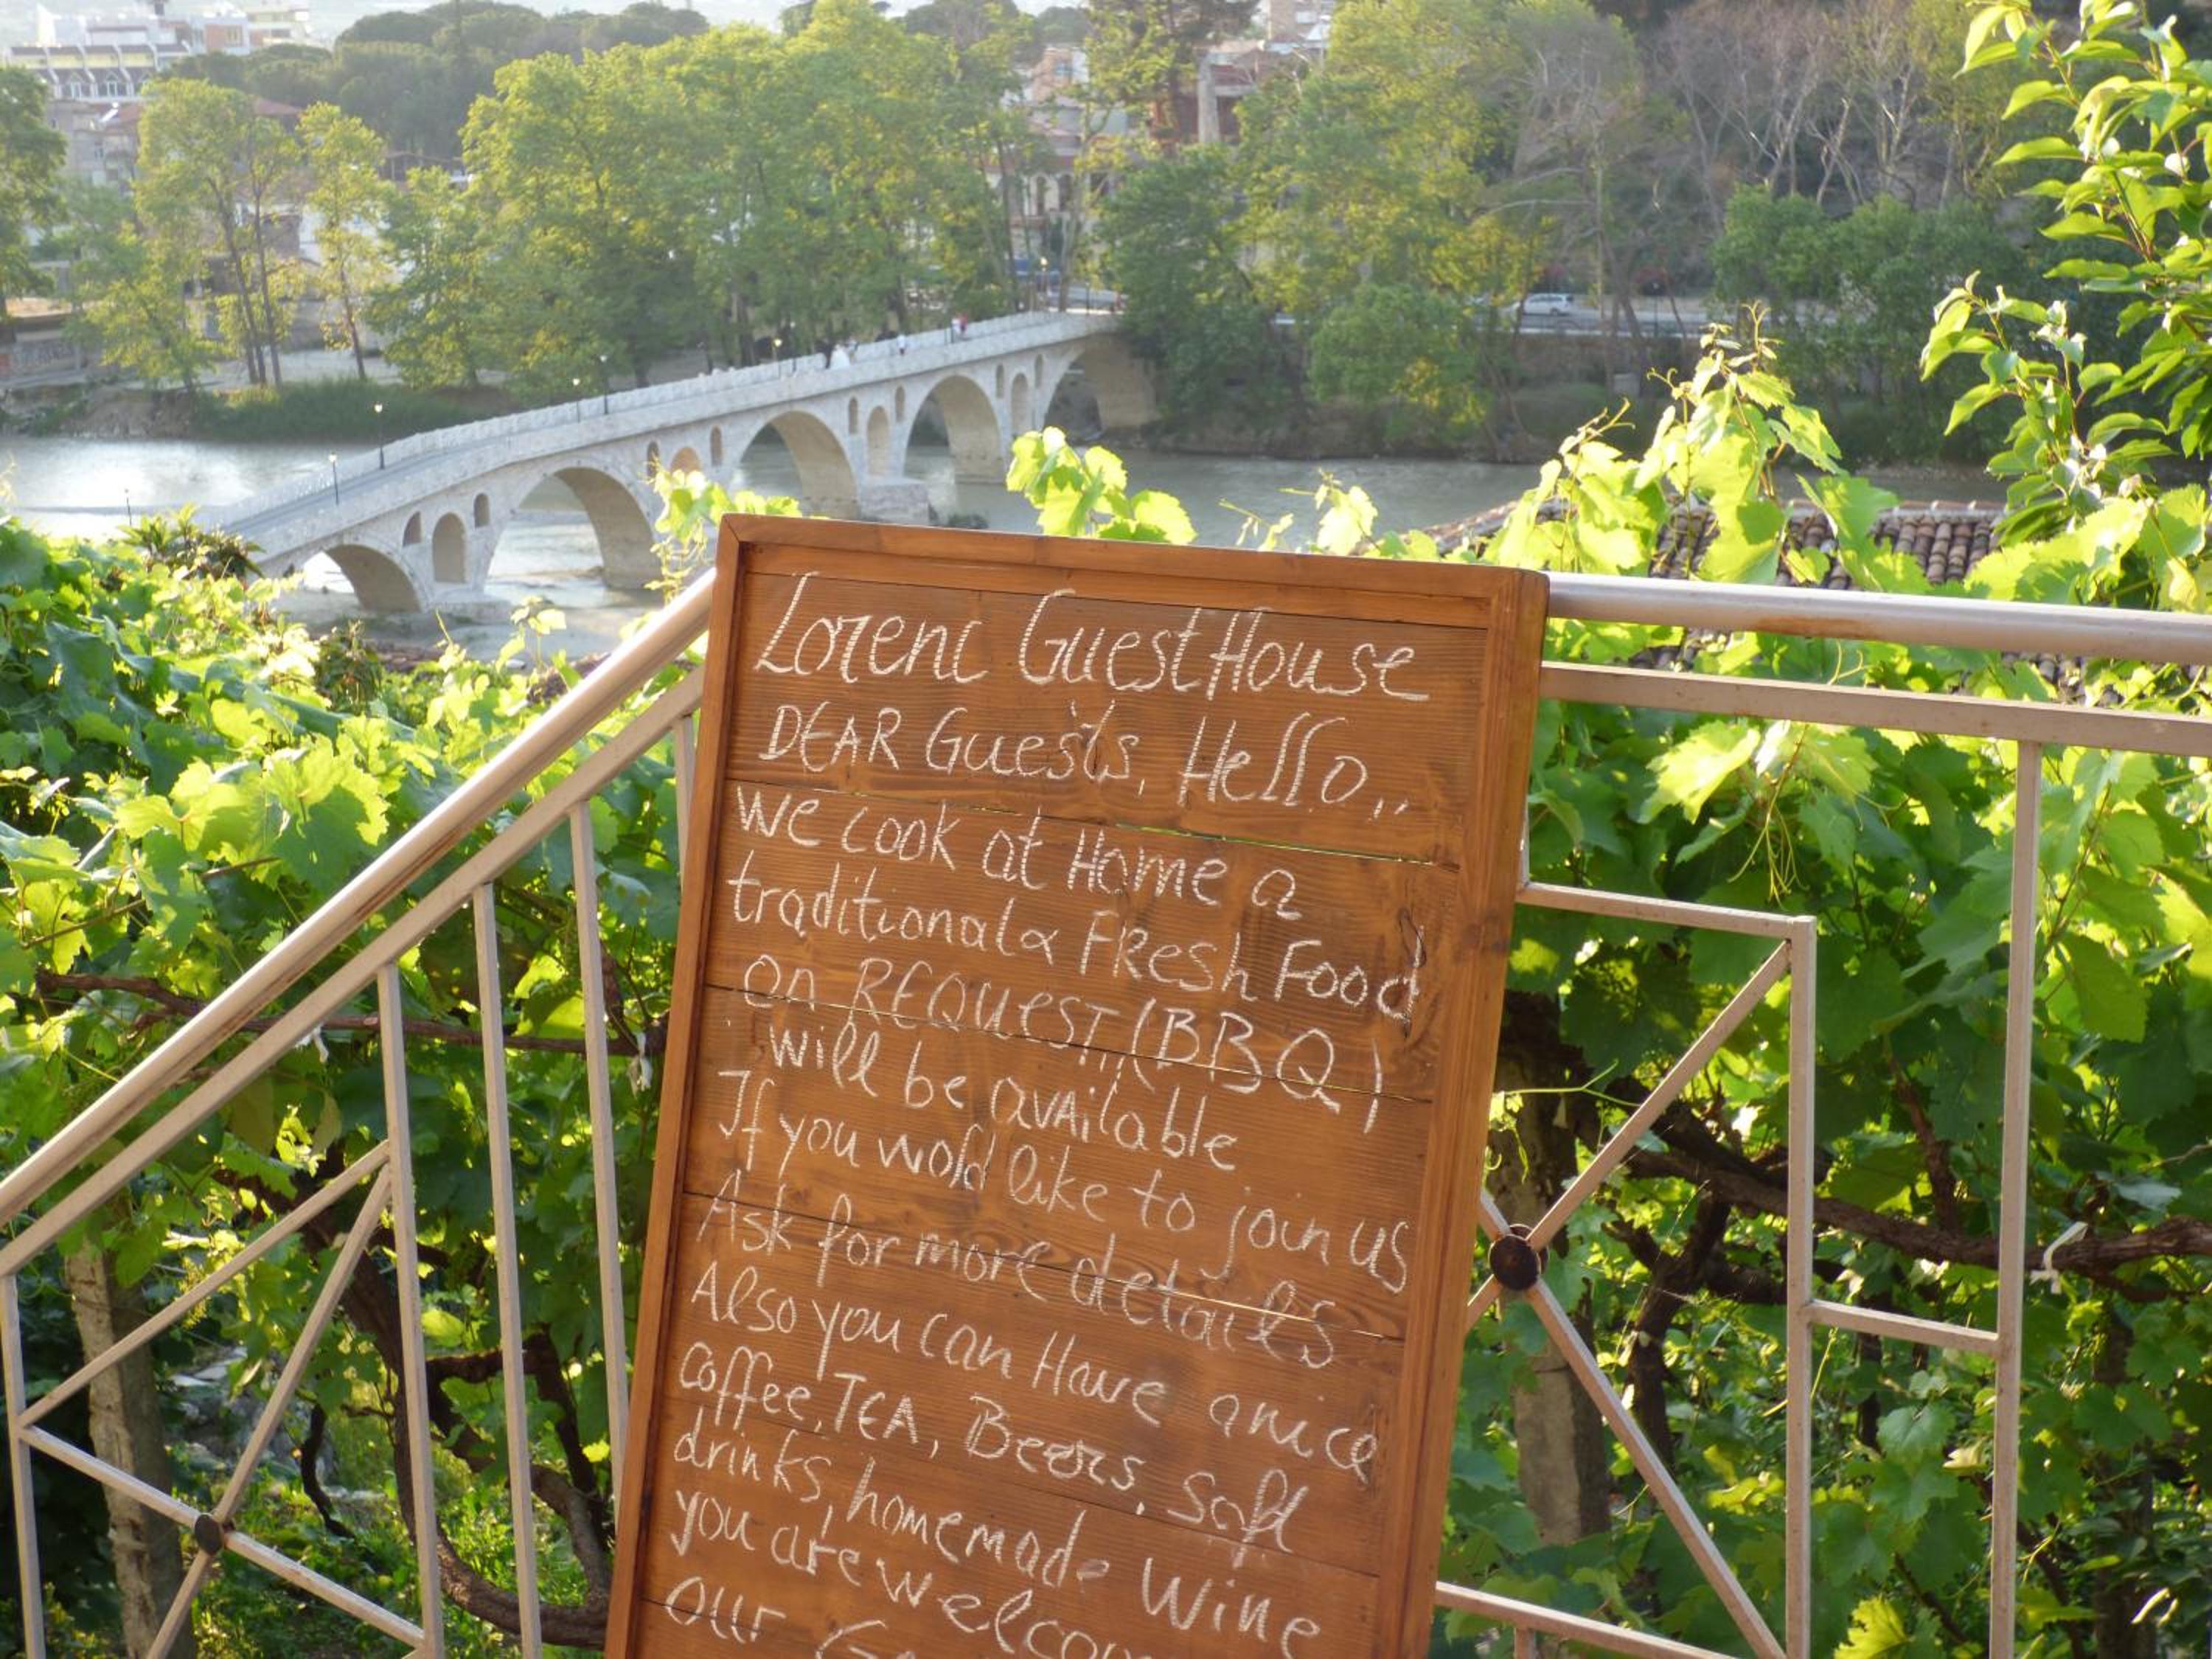 Lorenc GuestHouse
DEAR Guests, Hello,,
we cook at Home a
traditionala FResh Food
on REQUEST,(BBQ)
will be available
If you wold like to join us
Ask for more details
Also you can Have a nice
coffee, TEA, Beers, Soft
drinks, homemade Wine
you are welcom
our